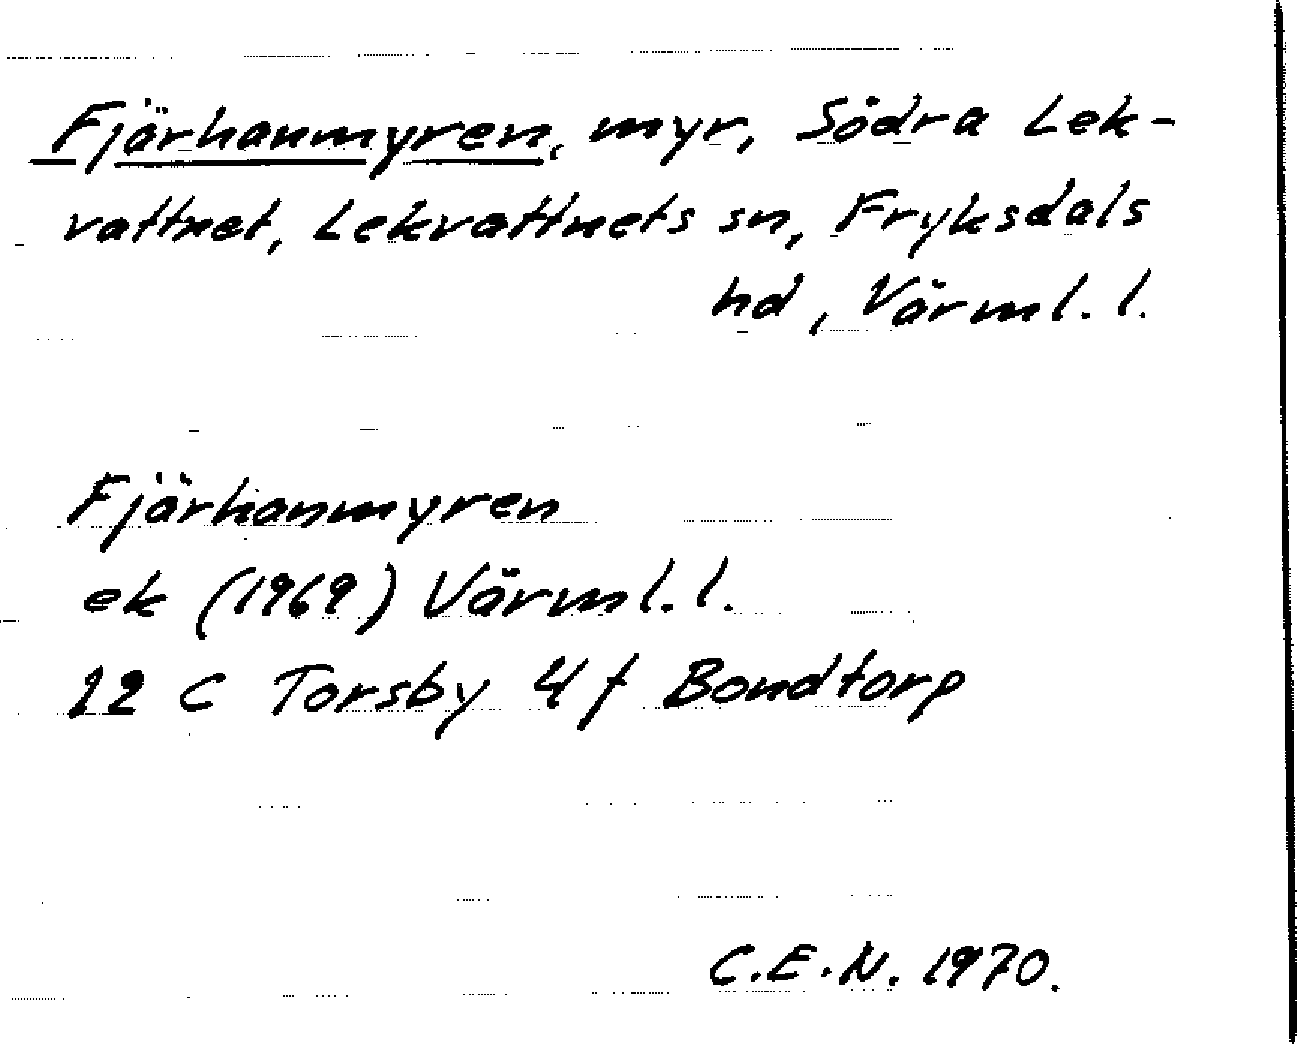 Fjärhanmyren, myr, Södra Lek-
vattnet, Lekvattnets sn, Fryksdals
hd, Värml. l.
Fjärhanmyren
ek (1969) Värml. l.
12 C Torsby 4 f Bondtorp
C.E.N. 1970.